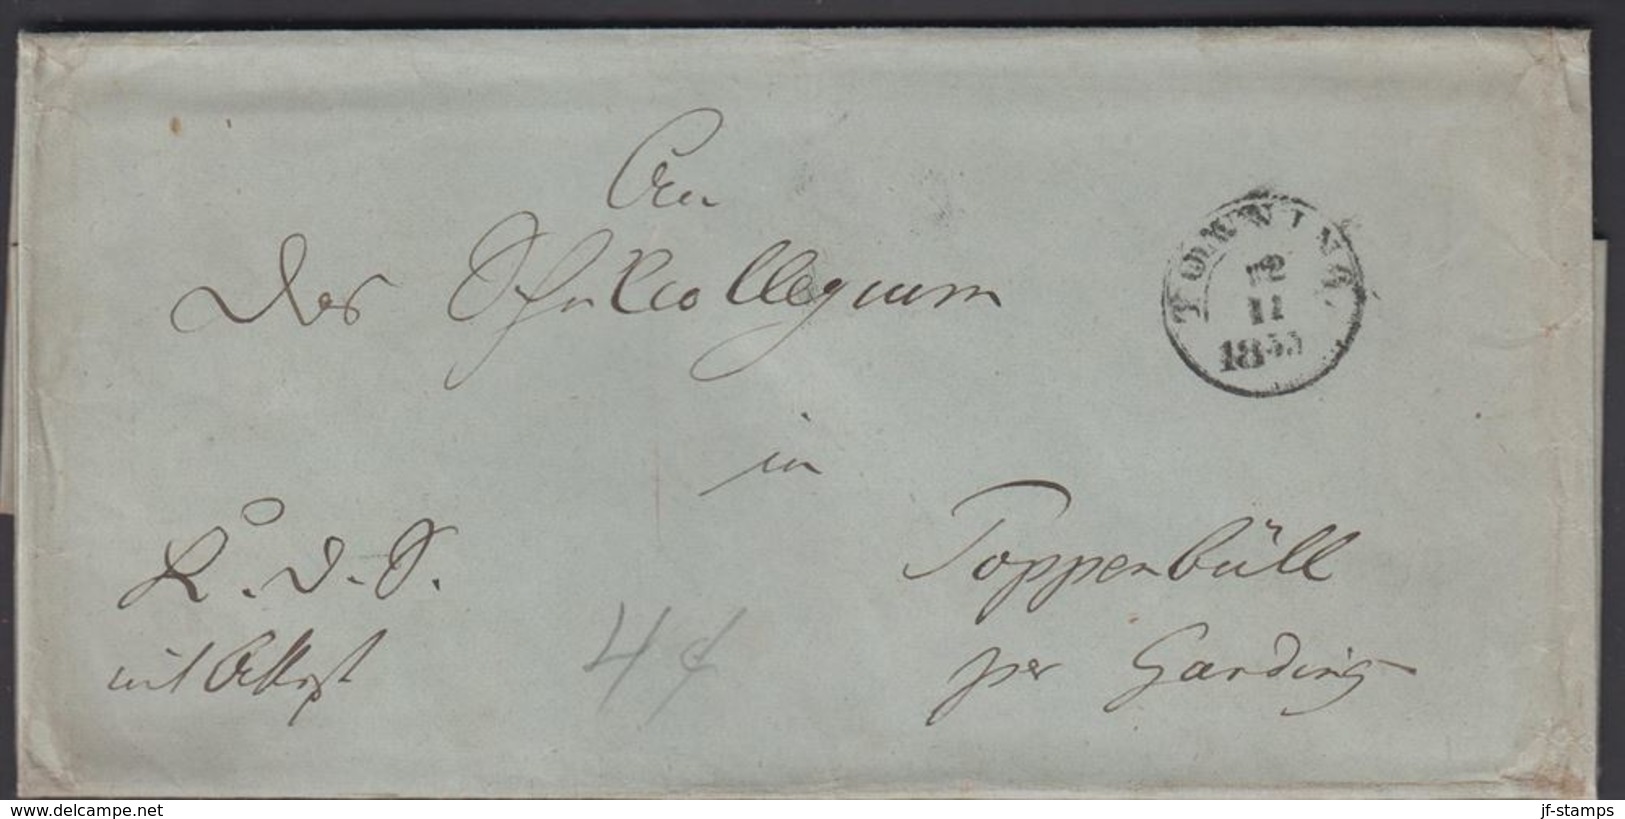 An
das Schulcollegium
in
Toppenbüll
per Garding
K. d. S.
mit Attest
4 ¢
TÖNNING.
12
11
1855
www.delcampe.net
jf-stamps